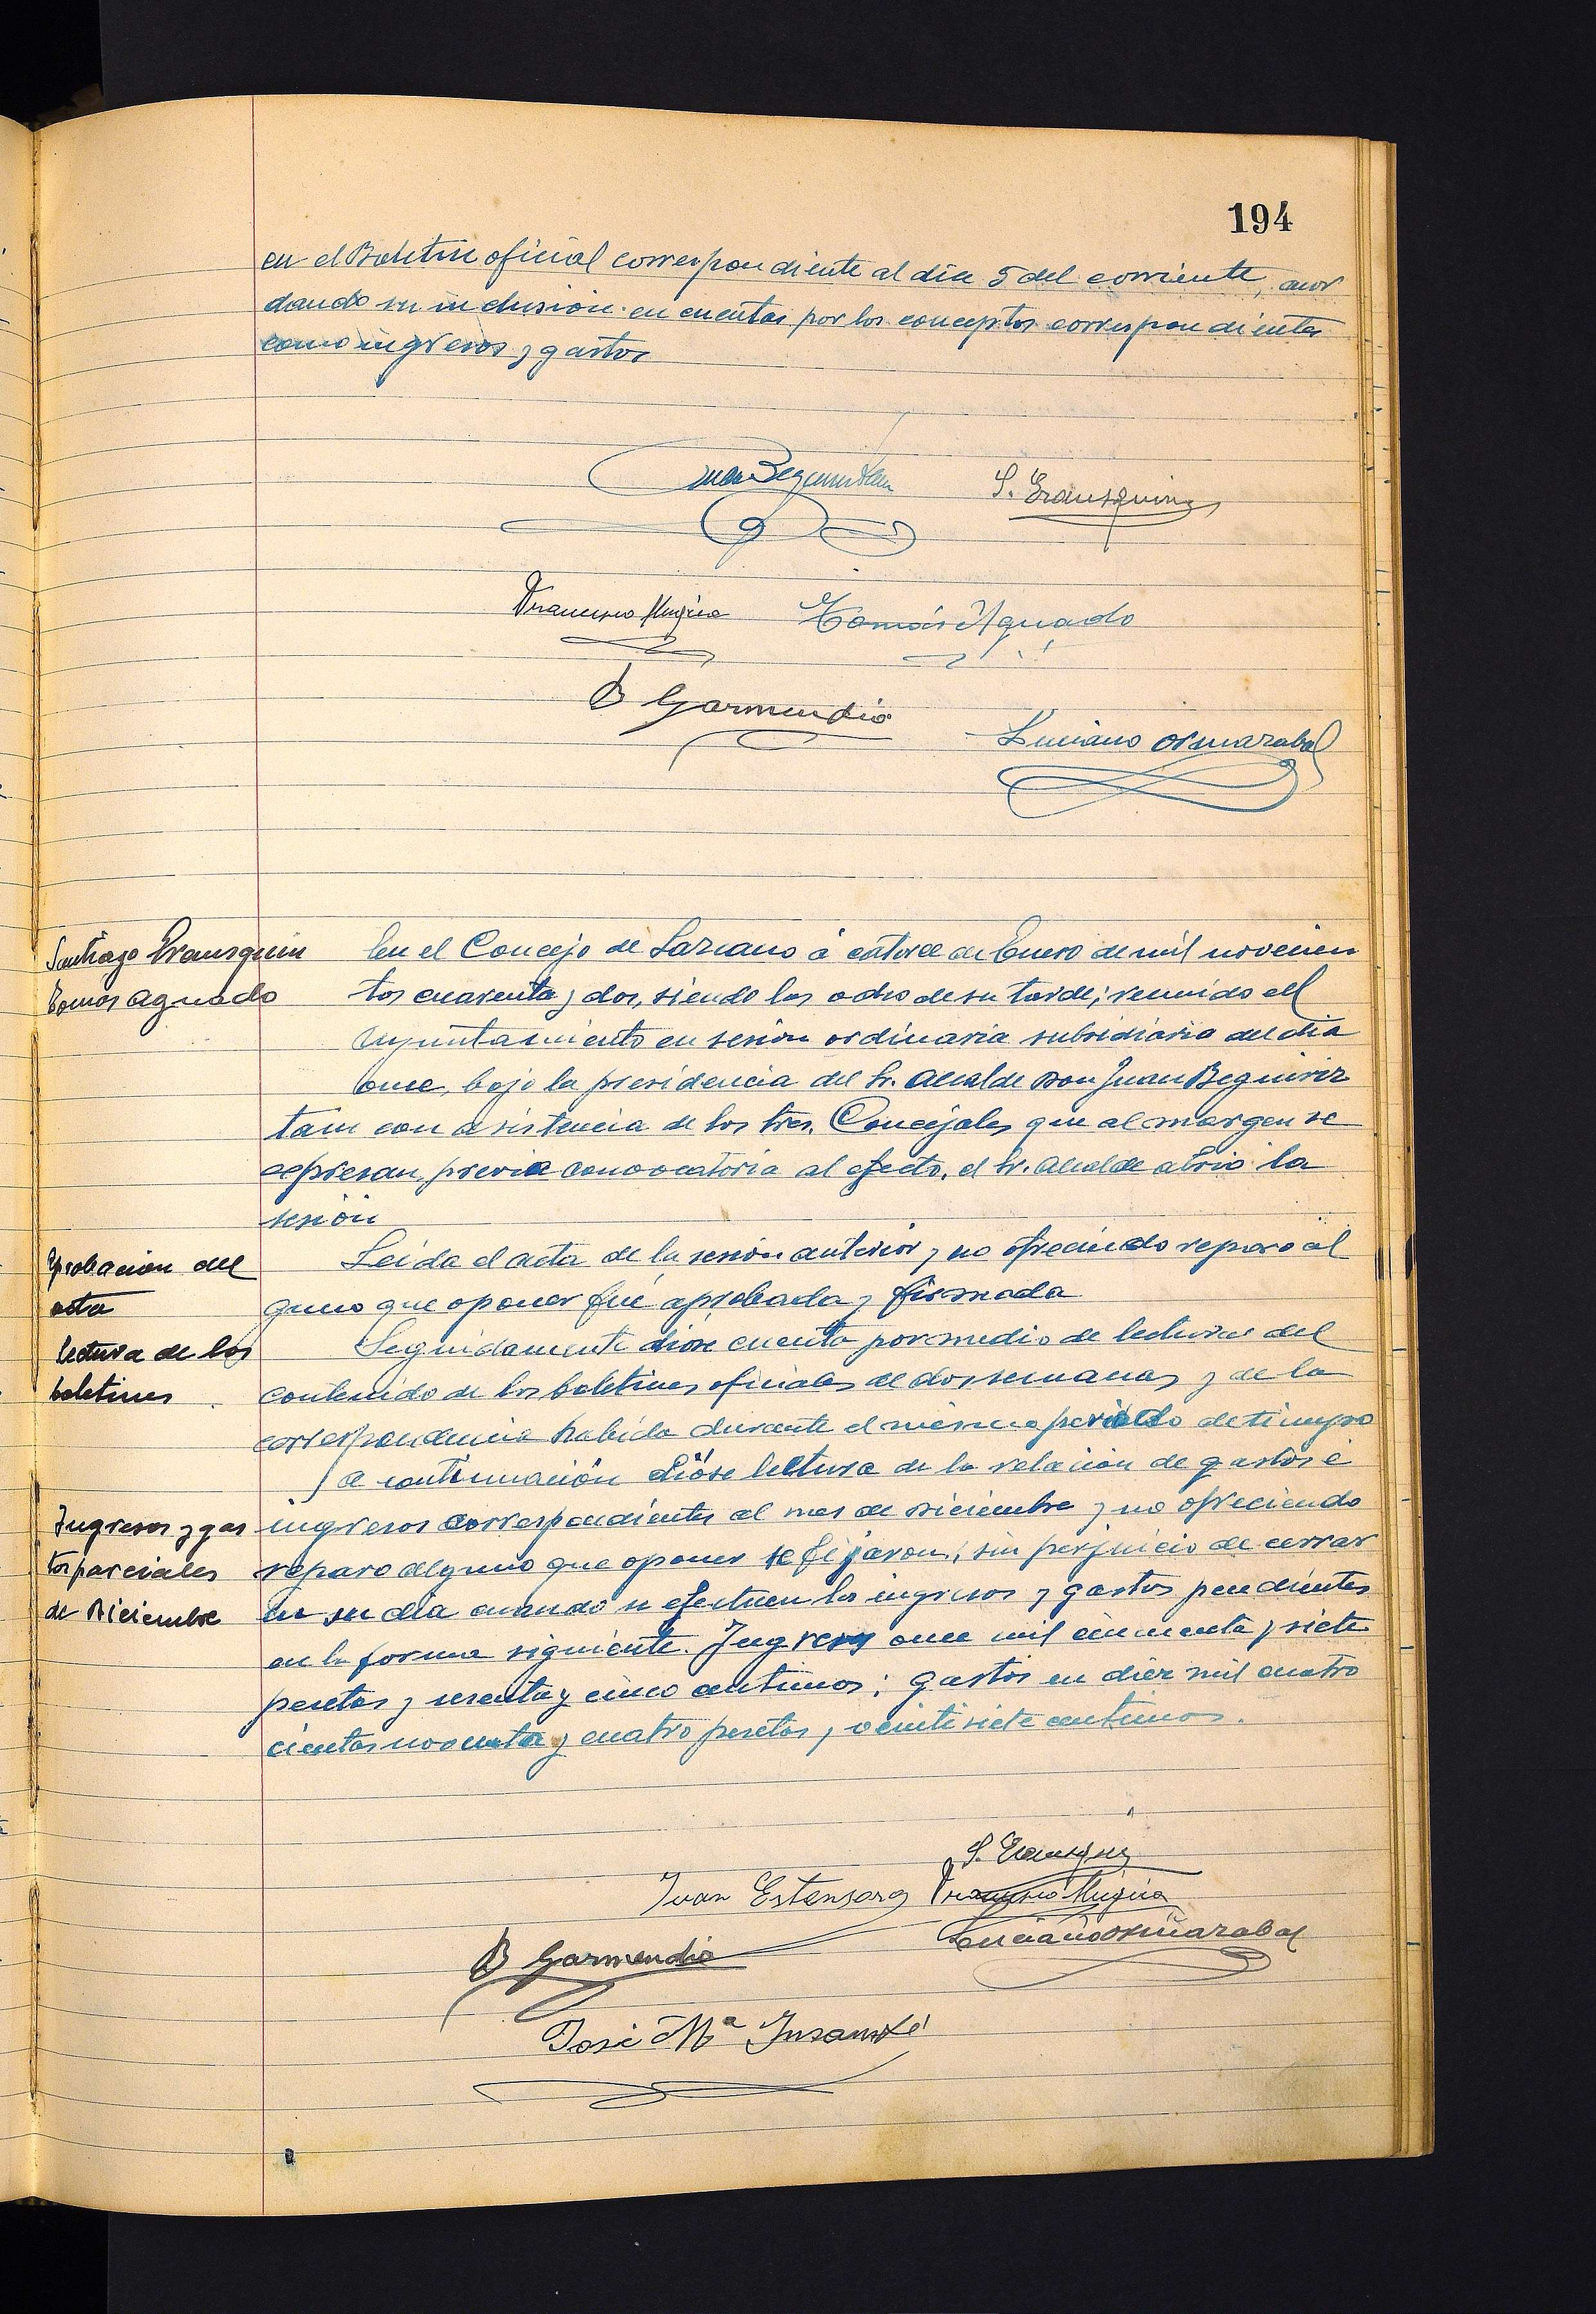 194
en el Boletin oficial correspondiente al dia 5 del corriente, acor
dando su inclusión en cuentas por los conceptos correspondientes
como ingresos y gastos
Juan Beguiristain
S. Erausquin
Francisco Mugica
Tomás Aguado
B Garmendia
Luciano Ormazabal
Santiago Erausquin
Tomas Aguado
En el Concejo de Lazcano á catorce de Enero de mil novecien
tos cuarenta y dos, siendo las ocho de su tarde; reunido el
Ayuntamiento en sesion ordinaria subsidiaria del dia
once, bajo la presidencia del Sr. Alcalde Don Juan Beguiriz
tain con asistencia de los Sres. Concejales que al margen se
expresan, previa convocatoria al efecto, el Sr. Alcalde abrió la
sesión
Aprobacion del
acta
Leida el acta de la sesión anterior y no ofreciendo reparo al
guno que oponer fué aprobada y firmada
Lectura de los
boletines
Seguidamente dióse cuenta por medio de lectura del
contenido de los boletines oficiales de dos semanas y de la
correspondencia habida durante el mismo periodo de tiempo
Ingresos y gas
tos parciales
de Diciembre
y a continuación dióse lectura de la relación de gastos é
ingresos correspondientes al mes de diciembre y no ofreciendo
reparo alguno que oponer se fijaron, sin perjuicio de cerrar
en su dia cuando se efectuen los ingresos y gastos pendientes
en la forma siguiente. Ingresos once mil cincuenta y siete
pesetas y sesenta y cinco centimos; gastos en diez mil cuatro
cientas noventa y cuatro pesetas y veintisiete centimos.
S. Erausquin
Juan Estensoro
Francisco Mugica
B Garmendia
Luciano Ormazabal
José Mª Insausti